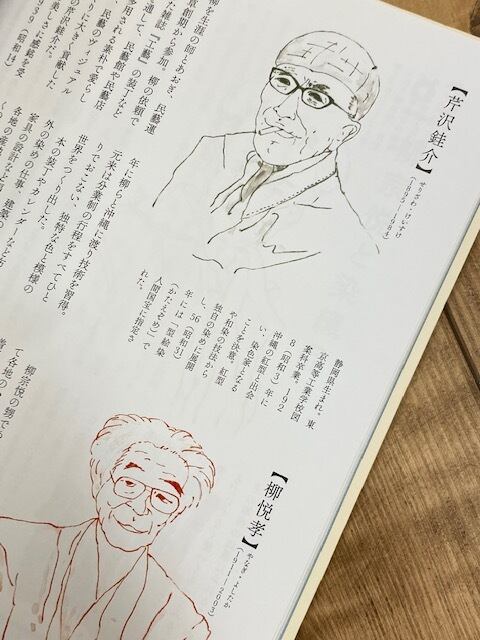 【芹沢銈介】
せりざわ・けいすけ
(1895−1984)
静岡県生まれ。東
京高等工業学校図
案科卒業。192
8(昭和3)年に
沖縄の紅型と出会
い、染色家となる
ことを決意。紅型
や和染の技法から
独自の染めに展開
し、56(昭和31)
年には「型絵染
(かたえぞめ)」で
人間国宝に指定さ
れた。
柳を生涯の師とあおぎ、民藝運
草創期から参加。柳の依頼で
た雑誌『工藝』の装丁など
通して、民藝館や民藝店
用される素朴で愛らし
のヴィジュアル
に大きく貢献した
芹沢銈介だ。
美しさに感銘を受
939(昭和14)
年に柳らと沖縄に渡り技術を習得。
元来は分業制の行程をすべてひと
りでおこない、独特な色と模様の
世界をつくり出した。
本の装丁やカレンダーなど布
外の染めの仕事
家具の設計など
各地の
【柳悦孝】
やなぎ・よしたか
(1911−2003)
柳宗悦の甥でも
て各地の